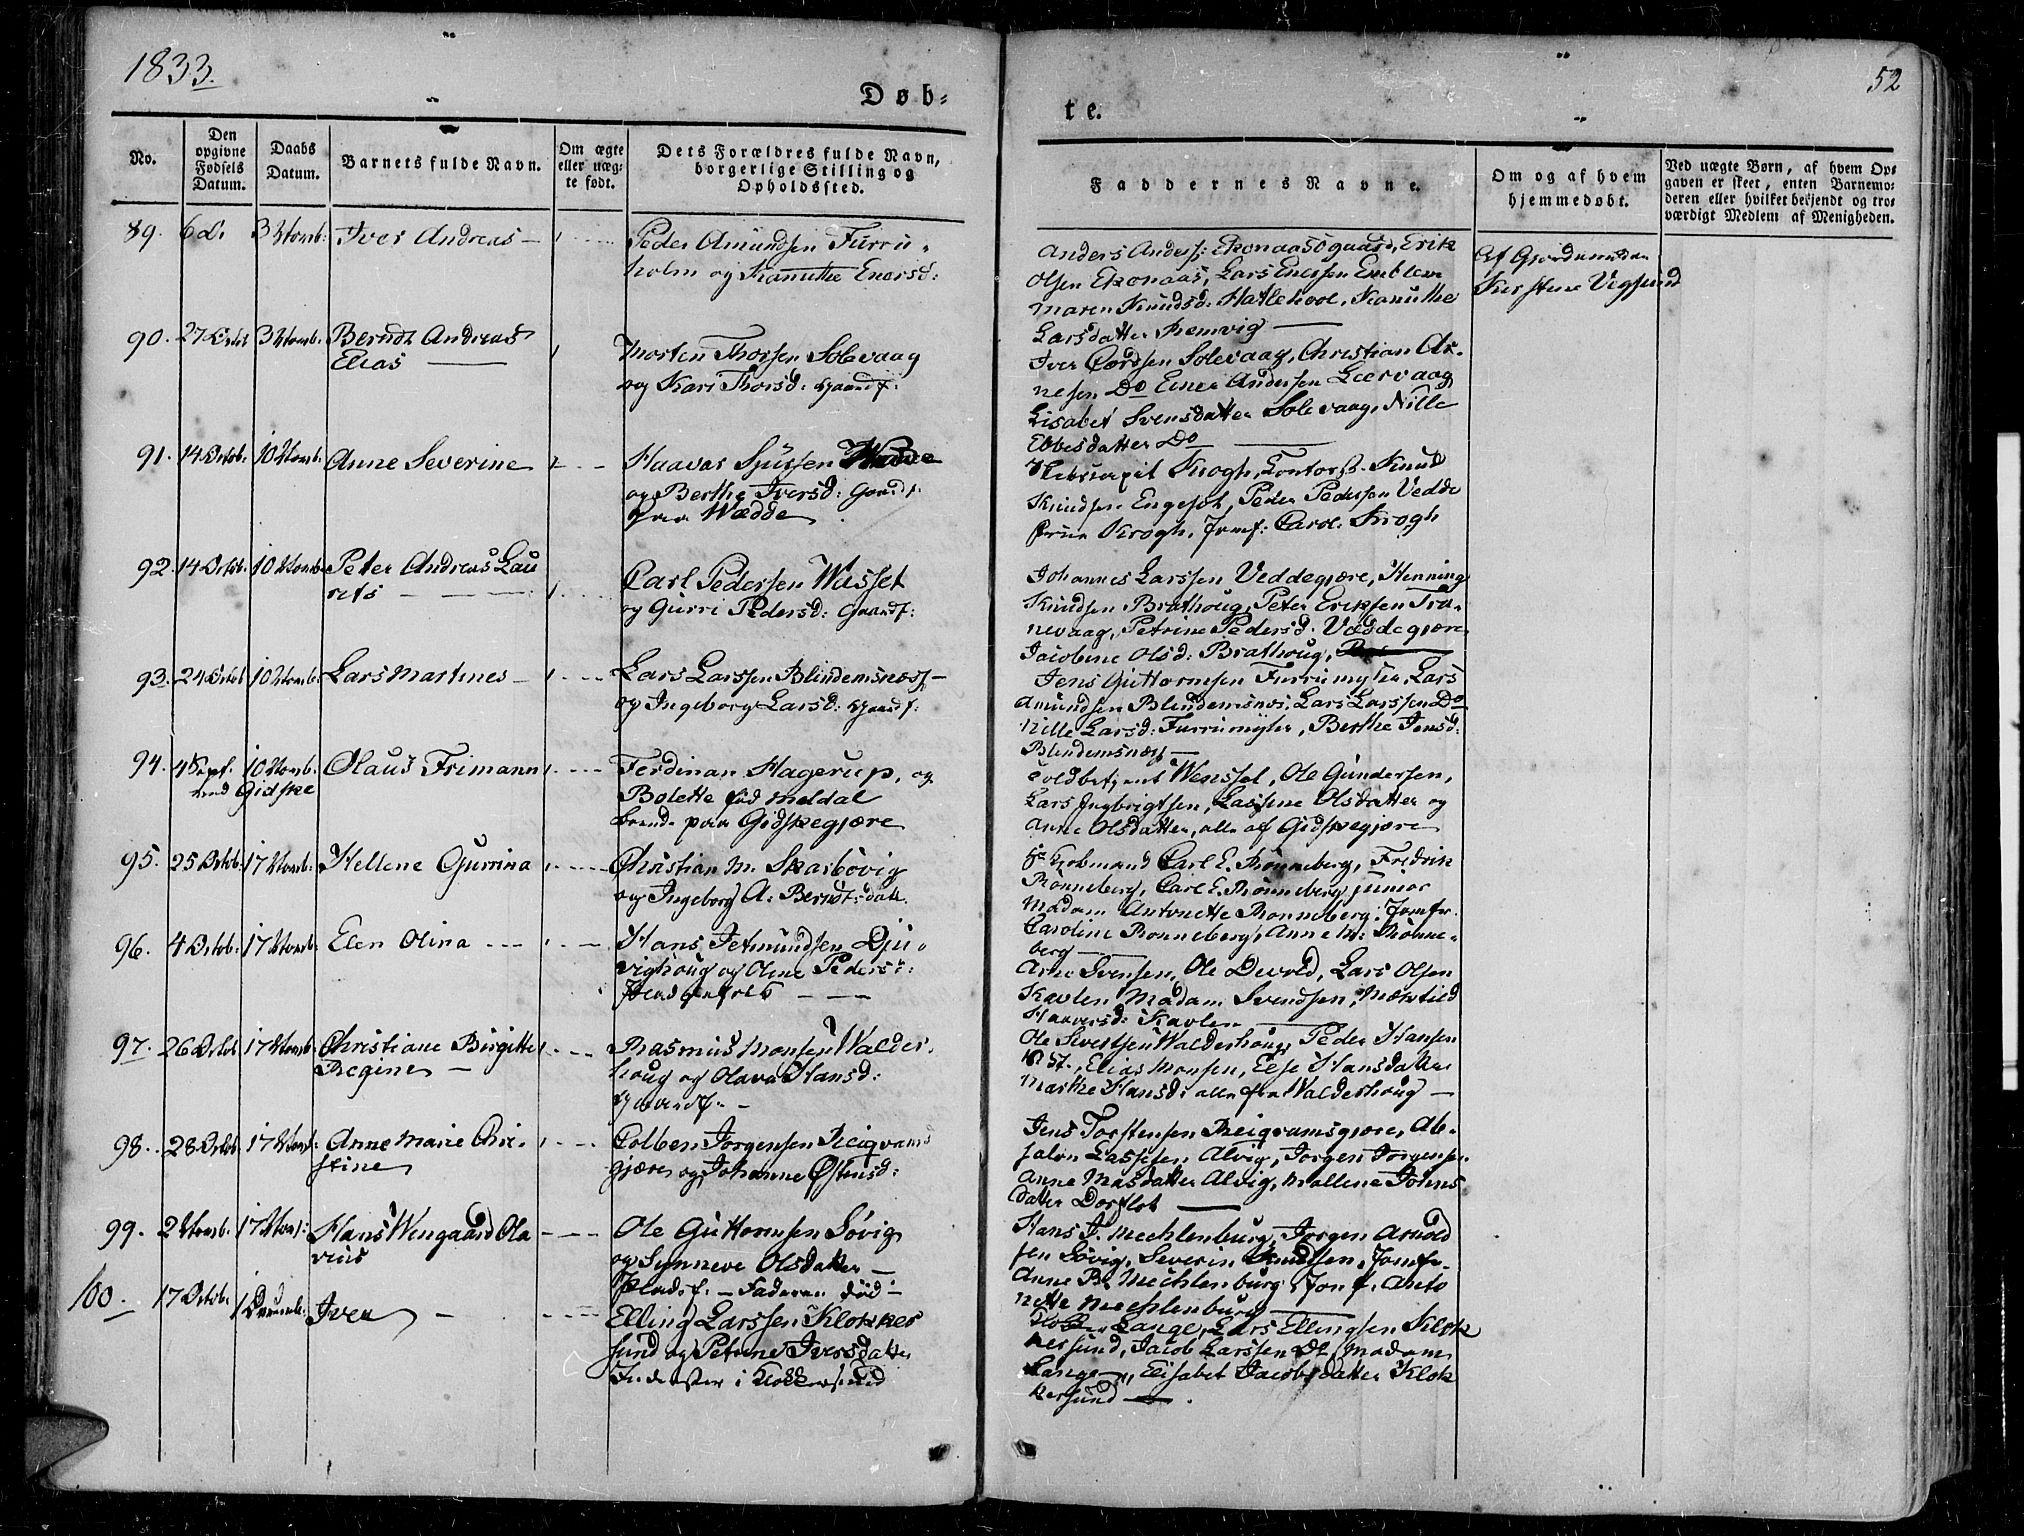 1833.
52
Døb=
te.
No.
Den opgivne Fødsels Datum.
Daabs Datum.
Barnets fulde Navn.
Om ægte eller uæg-te født.
Dets Forældres fulde Navn, borgerlige Stilling og Opholdssted.
Faddernes Navne.
Om og af hvem hjemmedøbt.
Ved uægte Børn, af hvem Op-gaven er skeet, enten Barnemo-deren eller hvilket bekjendt og tro-værdigt Medlem af Menigheden.
89. 6 D. 3 Novemb: Iver Andreas —
Peder Amundsen Furru-
holm og Kanutke Enersd:
Anders Anders: Ekonaasøgaard, Erik
Olsen Ekonaas, Lars Enessen Emblem
Maren Knudsd: Hatlehool, Kanutke
Larsdatter Remvig —
Af Gjordemoder
Kirstene Vigsund
90. 27 Octob 3 Novemb: Berndt Andreas
Elias —
Morten Thorsen Solevaag
og Kari Thorsd: Gaardf:
Iver Cordsen Solevaag, Christian Ar-
nesen Do Einer Andersen Leervaag
Lisabet Svensdatter Solevaag, Nille
Ebbesdatter Do —
91. 14 Octob. 10 Novemb: Anne Severine
Haavar Sjursen
og Berthe Iversd: Gaardf:
paa Wædde
Krogh, Contorf. Knud
Knudsen Engeset, Peder Pedersen Vedde
Frue Krogh, Jomf: Carol. Krogh
92. 14 Octob. 10 Novemb Peter Andreas Lau
rits —
Carl Pedersen Wasset
og Gurri Pedersd: Gaardf:
Johannes Larssen Veddegjære, Henning
Knudsen Brathoug, Peter Eriksen Tra-
nevaag, Petrine Pedersd: Væddegjære
Jacobine Olsd: Brathoug,
93. 24 Octob 10 Novemb: Lars Martines —
Lars Larssen Blindemsnæss —
og Ingeborg Larsd: Gaardf:
Jens Guttormsen Furrumyhr, Lars
Amundsen Blindemsnæs, Lars Larssen Do
Nille Larsd: Furrumyhr, Berthe Jensd:
Blindemsnæs —
94. 4 Sept. 10 Novemb. Olaus Frimann
ved Gidske
Ferdinan Hagerup, og
Bolette fød Meldal
Boende paa Gidskegjære
Toldbetjent Wenssel, Ole Gundersen,
Lars Ingbrigtsen, Lassene Olsdatter og
Anne Olsdatter, alle af Gidskegjære
95. 25 Octob. 17 Novemb: Hellene Gurrina
Christian M. Skarbövig
og Ingeborg A: Berndtsdatt.
Hr Kjøbmand Carl E. Rönneberg, Fredrik
Rönneberg, Carl E. Rönneberg junior
Madam Antonette Rönneberg, Jomfr.
Caroline Rönneberg, Anne M: Rönne-
berg —
96. 4 Octob. 17 Novemb: Elen Olina — —
Hans Jetmundsen Dju-
vighoug og Oline Pedersd:
— —
Arne Svensen, Ole Devold, Lars Olsen
Kavlen Madam Svendsen, Mæktild
Haaversd: Kavlen —
97. 26 Octob 17 Novemb: Christiane Birgitte
Regine —
Rasmus Monsen Walder-
houg og Olava Hansd:
Gaardf. —
Ole Sivertsen Walderhoug, Peder Hansen
Elias Monsen, Else Hansdatter
Marthe Hansd: alle fra Walderhoug —
98. 28 Octob. 17 Novemb: Anne Marie Chri-
stine
Colben Jørgensen Reigrams
gjære og Johanne Østensd:
Jens Torstensen Reigramsgjære, Ab-
salon Lassesen Alvig, Jørgen Jørgensen
Anne Masdatter Alvig, Mallene Johns
datter Dorflot —
99. 2 Novemb. 17 Novemb: Hans Wengaard Ola
vius
Ole Guttormsen Sövig
og Synneve Olsdatter —
— Faderen död —
Hans J. Mechlenburg, Jørgen Arnold
sen Sövig, Severin Knudsen, Jomfr.
Anne B. Mechlenburg, Jomf. Anto
nette Mechlenburg —
100. 17 Octob. 1 Decemb. Iver —
Elling Larssen Klokker
sund og Petrine Iversdatter
Inderster i Klokkersund
Lange, Lars Ellingsen Klok
kersund, Jacob Larssen Do, Madam
Lange, Elisabet Jacobsdatter Klok
kersund — .